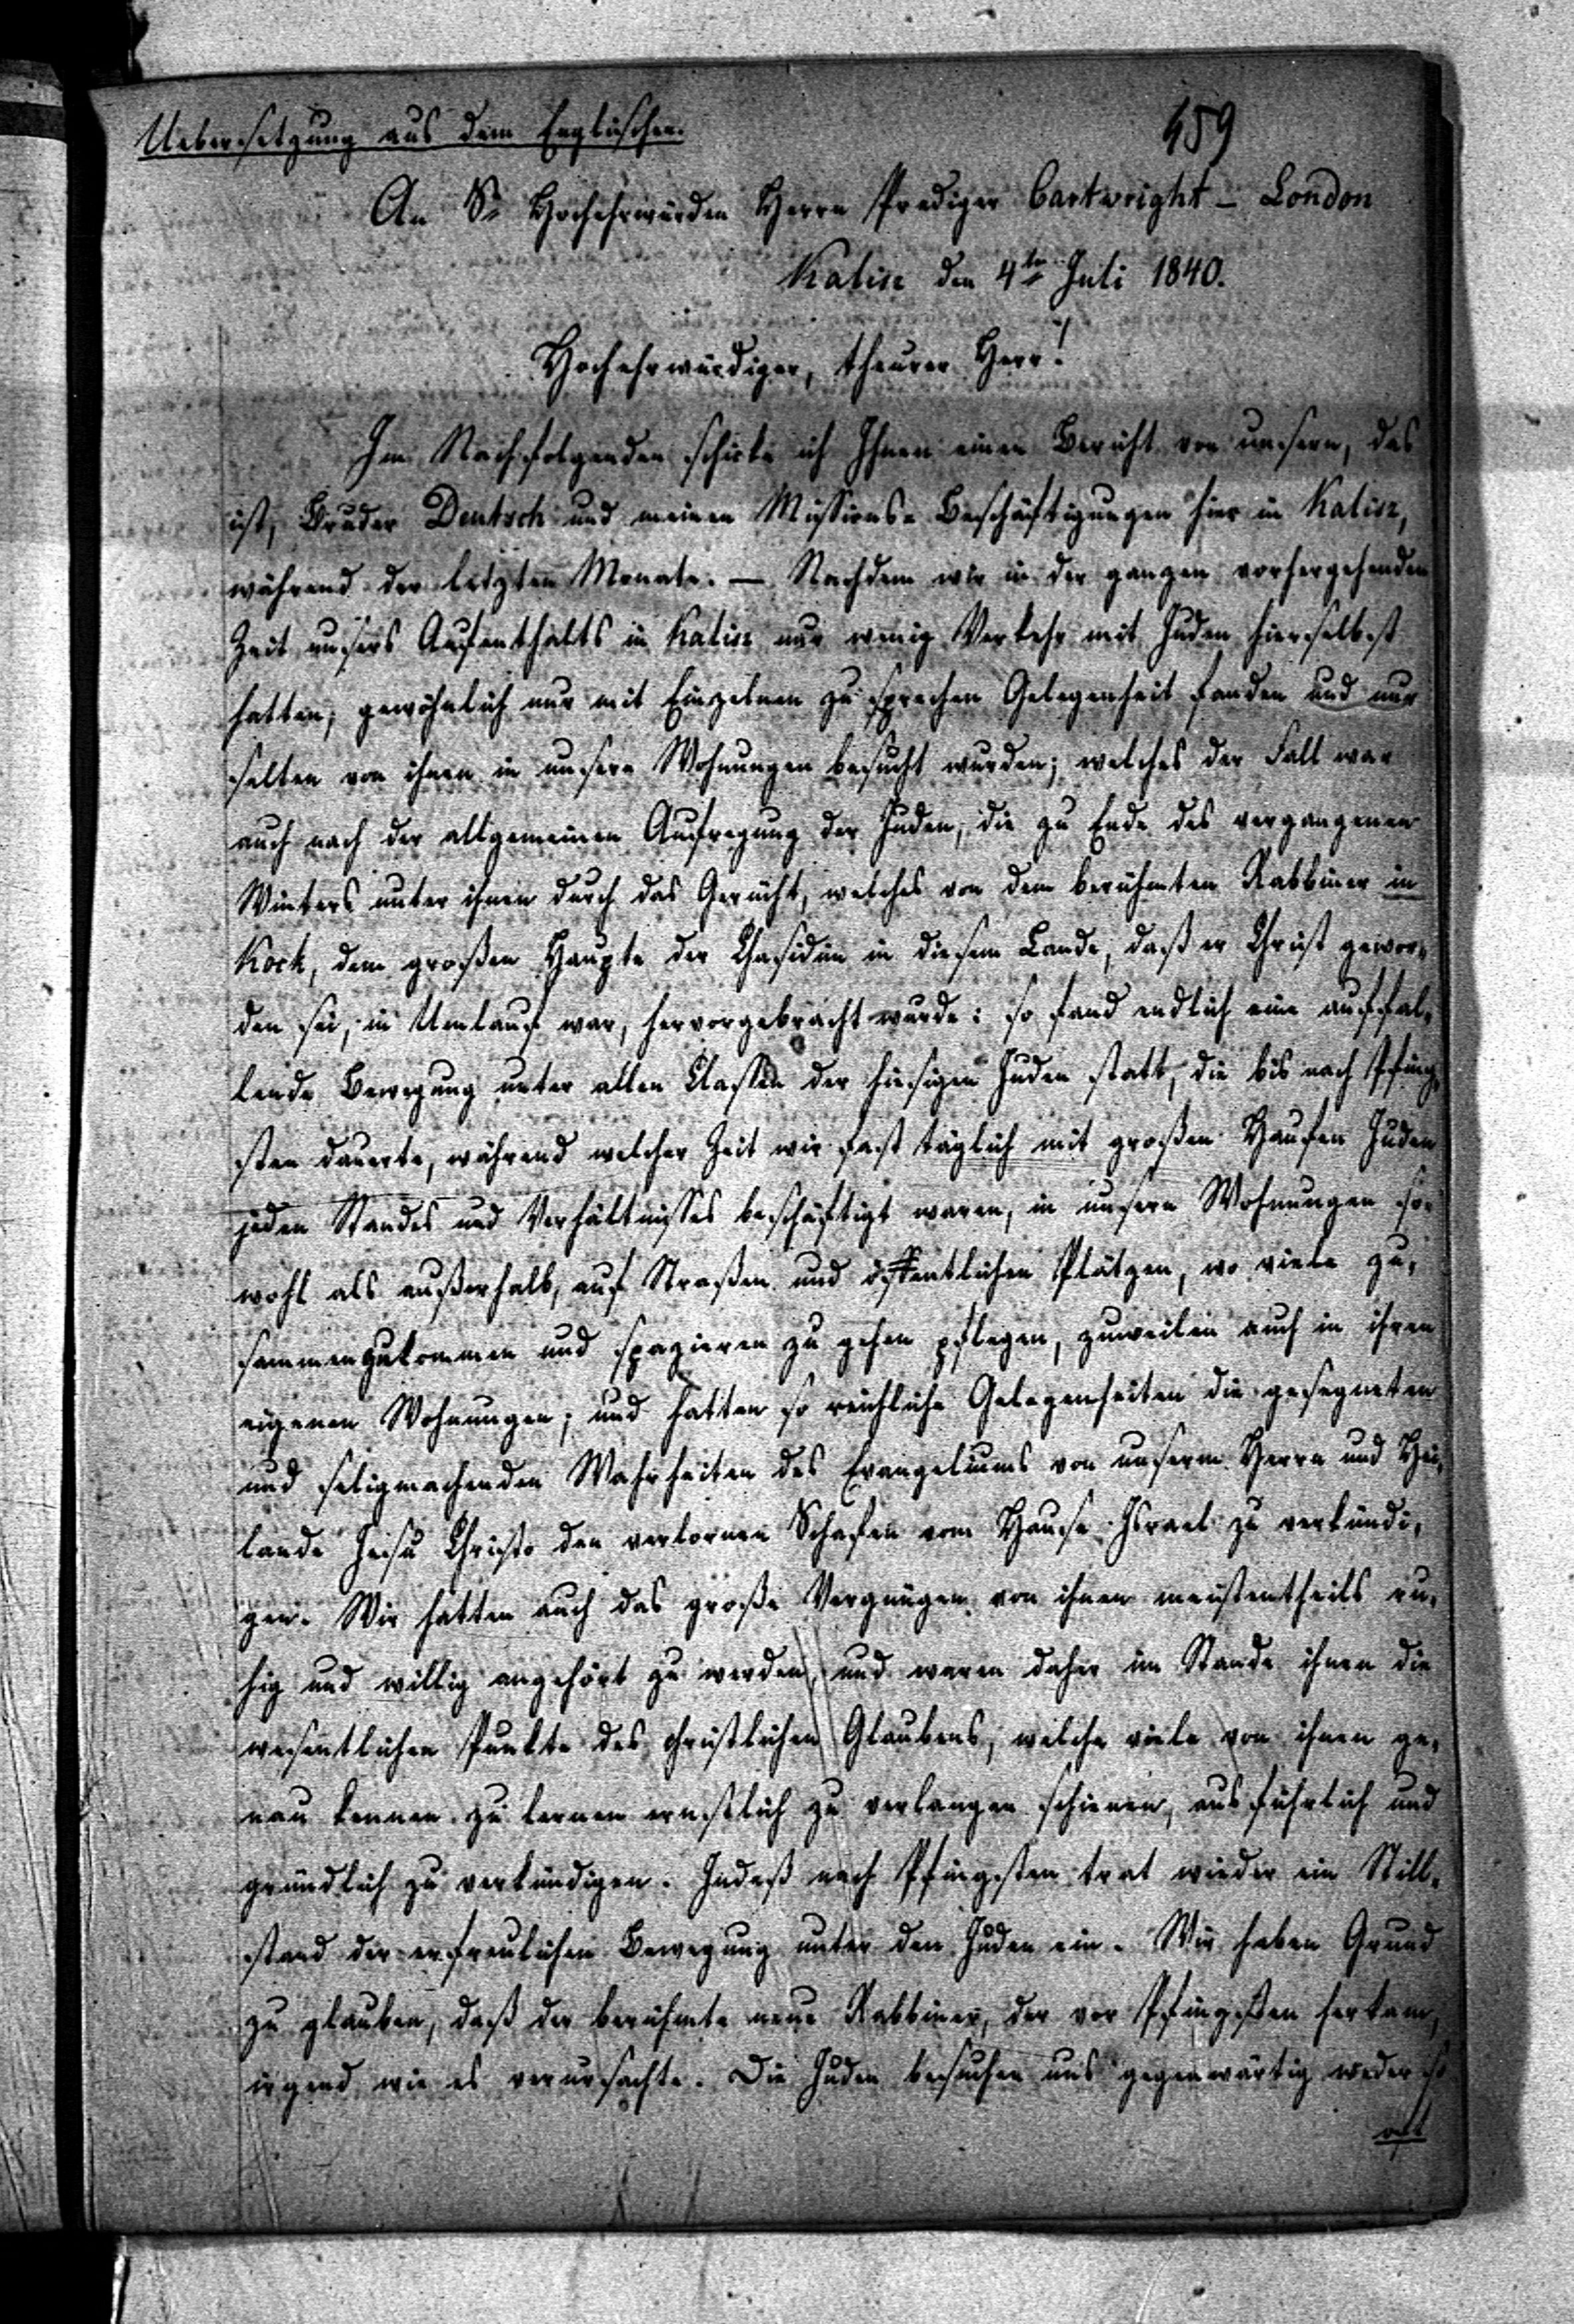 Uebersetzung aus dem Englischen.
459
An Sr Hochehrwürden Herrn Prediger Cartwright – London
Kalisz den 4ten Juli 1840.
Hochehrwürdiger, theurer Herr!
Im Nachfolgenden schicke ich Ihnen einen Bericht von unsern, das
ist, Bruder Deutsch und meinen Missions-Beschäftigungen hier in Kalisz,
während der letzten Monate. — Nachdem wir in der ganzen vorhergehenden
Zeit unsers Aufenthalts in Kalisz nur wenig Verkehr mit Juden hierselbst
hatten, gewöhnlich nur mit Einzelnen zu sprechen Gelegenheit fanden und nur
selten von ihnen in unsern Wohnungen besucht wurden; welches der Fall war
auch nach der allgemeinen Aufregung der Juden, die zu Ende des vergangenen
Winters unter ihnen durch das Gerücht, welches von dem berühmten Rabbiner in
Kock, dem großen Haupte der Chasidim in diesem Lande, daß er Christ gewor-
den sei, in Umlauf war, hervorgebracht wurde: so fand endlich eine auffal-
lende Bewegung unter allen Classen der hiesigen Juden statt, die bis nach Pfing-
sten dauerte, während welcher Zeit wir fast täglich mit großen Haufen Juden
jeden Standes und Verhältnisses beschäftigt waren, in unsern Wohnungen so-
wohl als außerhalb, auf Straßen und öffentlichen Plätzen, wo viele zu-
sammenzukommen und spazieren zu gehen pflegen, zuweilen auch in ihren
eigenen Wohnungen; und hatten so reichliche Gelegenheiten die gesegneten
und seligmachenden Wahrheiten des Evangeliums von unserm Herrn und Hei-
lande Jesu Christo den verlornen Schafen vom Hause Israel zu verkündi-
gen. Wir hatten auch das große Vergnügen von ihnen meistentheils ru-
hig und willig angehört zu werden, und waren daher im Stande ihnen die
wesentlichen Punkte des christlichen Glaubens, welche viele von ihnen ge-
nau kennen zu lernen ernstlich zu verlangen schienen, ausführlich und
gründlich zu verkündigen. Indeß nach Pfingsten trat wieder ein Still-
stand der erfreulichen Bewegung unter den Juden ein. Wir haben Grund
zu glauben, daß der berühmte neue Rabbiner, der vor Pfingsten herkam,
irgend wie es verursachte. Die Juden besuchen uns gegenwärtig weder so
oft